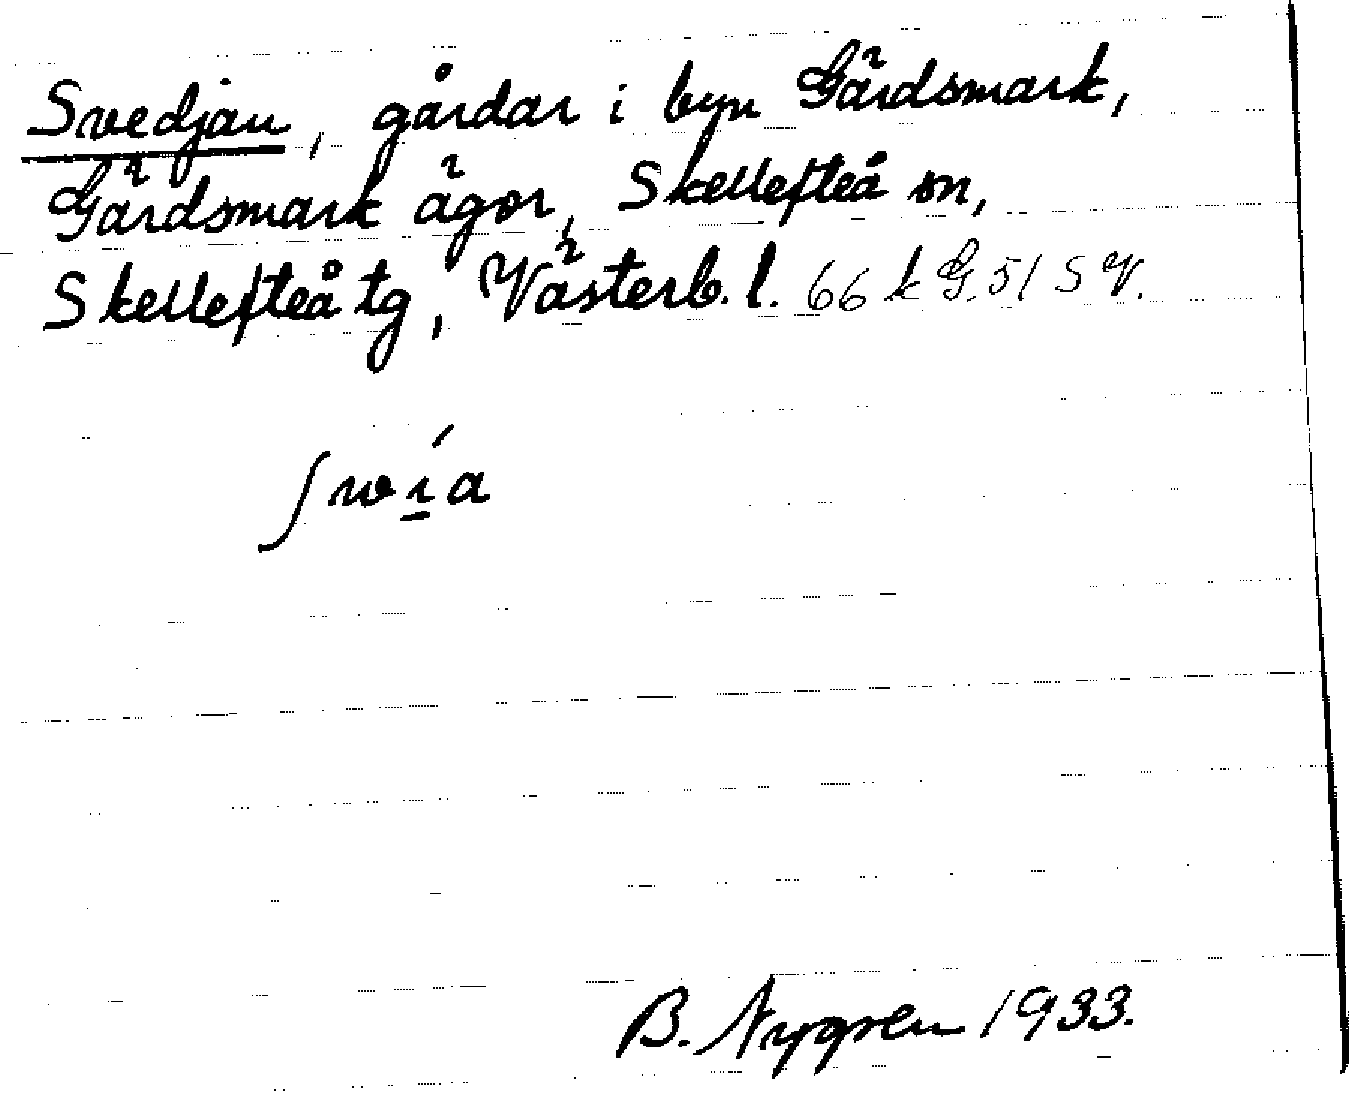 Svedjan, gårdar i byn Gärdsmark,
Gärdsmark ägor, Skellefteå sn,
Skellefteå tg, Västerb. l. 66 k G. 51 S V.
B. Nygren 1933.